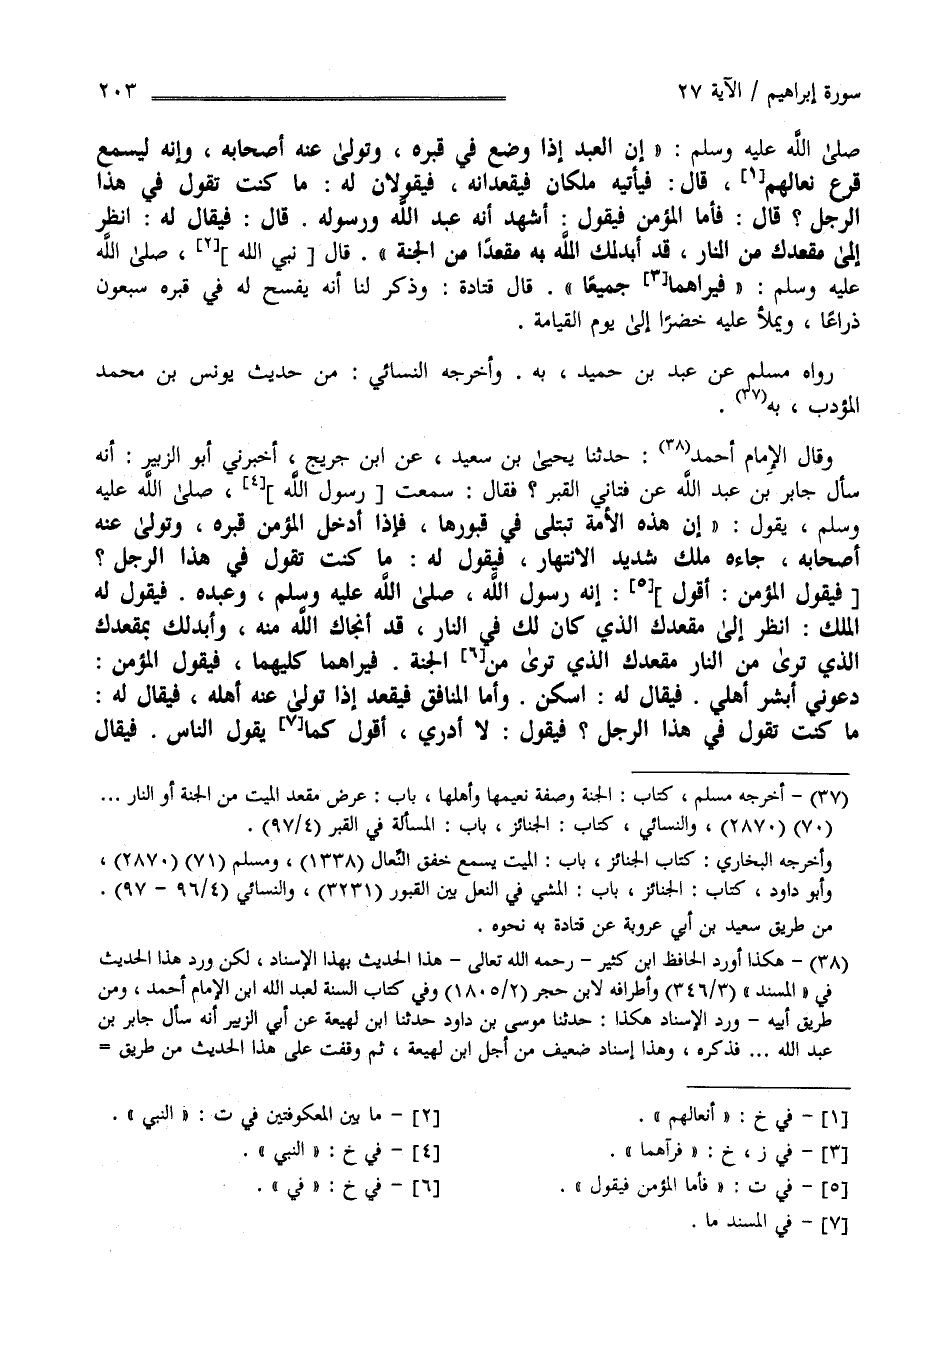 سورة إبراهيم / الآية ٢٧ ٢٠٣
صلى اللَّه عليه وسلم : « إن العبد إذا وضع في قبره ، وتولى عنه أصحابه ، وإنه ليسمع
قرع نعالهم[١] ، قال : فيأتيه ملكان فيقعدانه ، فيقولان له : ما كنت تقول في هذا
الرجل ؟ قال : فأما المؤمن فيقول : أشهد أنه عبد اللَّه ورسوله . قال : فيقال له : انظر
إلى مقعدك من النار ، قد أبدلك اللَّه به مقعدًا من الجنة » . قال [ نبي الله ][٢] ، صلى اللَّه
عليه وسلم : « فيراهما[٣] جميعًا » . قال قتادة : وذكر لنا أنه يفسح له في قبره سبعون
ذراعًا ، ويملأ عليه خضرًا إلى يوم القيامة .
رواه مسلم عن عبد بن حميد ، به . وأخرجه النسائي : من حديث يونس بن محمد
المؤدب ، به(٣٧) .
وقال الإمام أحمد(٣٨) : حدثنا يحيى بن سعيد ، عن ابن جريج ، أخبرني أبو الزبير : أنه
سأل جابر بن عبد اللَّه عن فتاني القبر ؟ فقال : سمعت [ رسول اللَّه ][٤] ، صلى اللَّه عليه
وسلم ، يقول : « إن هذه الأمة تبتلى في قبورها ، فإذا أدخل المؤمن قبره ، وتولى عنه
أصحابه ، جاءه ملك شديد الانتهار ، فيقول له : ما كنت تقول في هذا الرجل ؟
[ فيقول المؤمن : أقول ][٥] : إنه رسول اللَّه ، صلى اللَّه عليه وسلم ، وعبده . فيقول له
الملك : انظر إلى مقعدك الذي كان لك في النار ، قد أنجاك اللَّه منه ، وأبدلك بمقعدك
الذي ترى من النار مقعدك الذي ترى من[٦] الجنة . فيراهما كليهما ، فيقول المؤمن :
دعوني أبشر أهلي . فيقال له : اسكن . وأما المنافق فيقعد إذا تولى عنه أهله ، فيقال له :
ما كنت تقول في هذا الرجل ؟ فيقول : لا أدري ، أقول كما[٧] يقول الناس . فيقال
(٣٧) - أخرجه مسلم ، كتاب : الجنة وصفة نعيمها وأهلها ، باب : عرض مقعد الميت من الجنة أو النار ...
(٧٠) (٢٨٧٠) ، والنسائي ، كتاب : الجنائز ، باب : المسألة في القبر (٩٧/٤) .
وأخرجه البخاري : كتاب الجنائز ، باب : الميت يسمع خفق النِّعال (١٣٣٨) ، ومسلم (٧١) (٢٨٧٠) ،
وأبو داود ، كتاب : الجنائز ، باب : المشي في النعل بين القبور (٣٢٣١) ، والنسائي (٩٦/٤ - ٩٧) .
من طريق سعيد بن أبي عروبة عن قتادة به نحوه .
(٣٨) - هكذا أورد الحافظ ابن كثير - رحمه الله تعالى - هذا الحديث بهذا الإسناد ، لكن ورد هذا الحديث
في « المسند » (٣٤٦/٣) وأطرافه لابن حجر (١٨٠٥/٢) وفي كتاب السنة لعبد الله ابن الإمام أحمد ، ومن
طريق أبيه - ورد الإسناد هكذا : حدثنا موسى بن داود حدثنا ابن لهيعة عن أبي الزبير أنه سأل جابر بن
عبد الله ... فذكره ، وهذا إسناد ضعيف من أجل ابن لهيعة ، ثم وقفت على هذا الحديث من طريق =
[١] - في خ : « أنعالهم » . [٢] - ما بين المعكوفتين في ت : « النبي » .
[٣] - في ز ، خ : « فرآهما » . [٤] - في خ : « النبي » .
[٥] - في ت : « فأما المؤمن فيقول » . [٦] - في خ : « في » .
[٧] - في المسند ما .